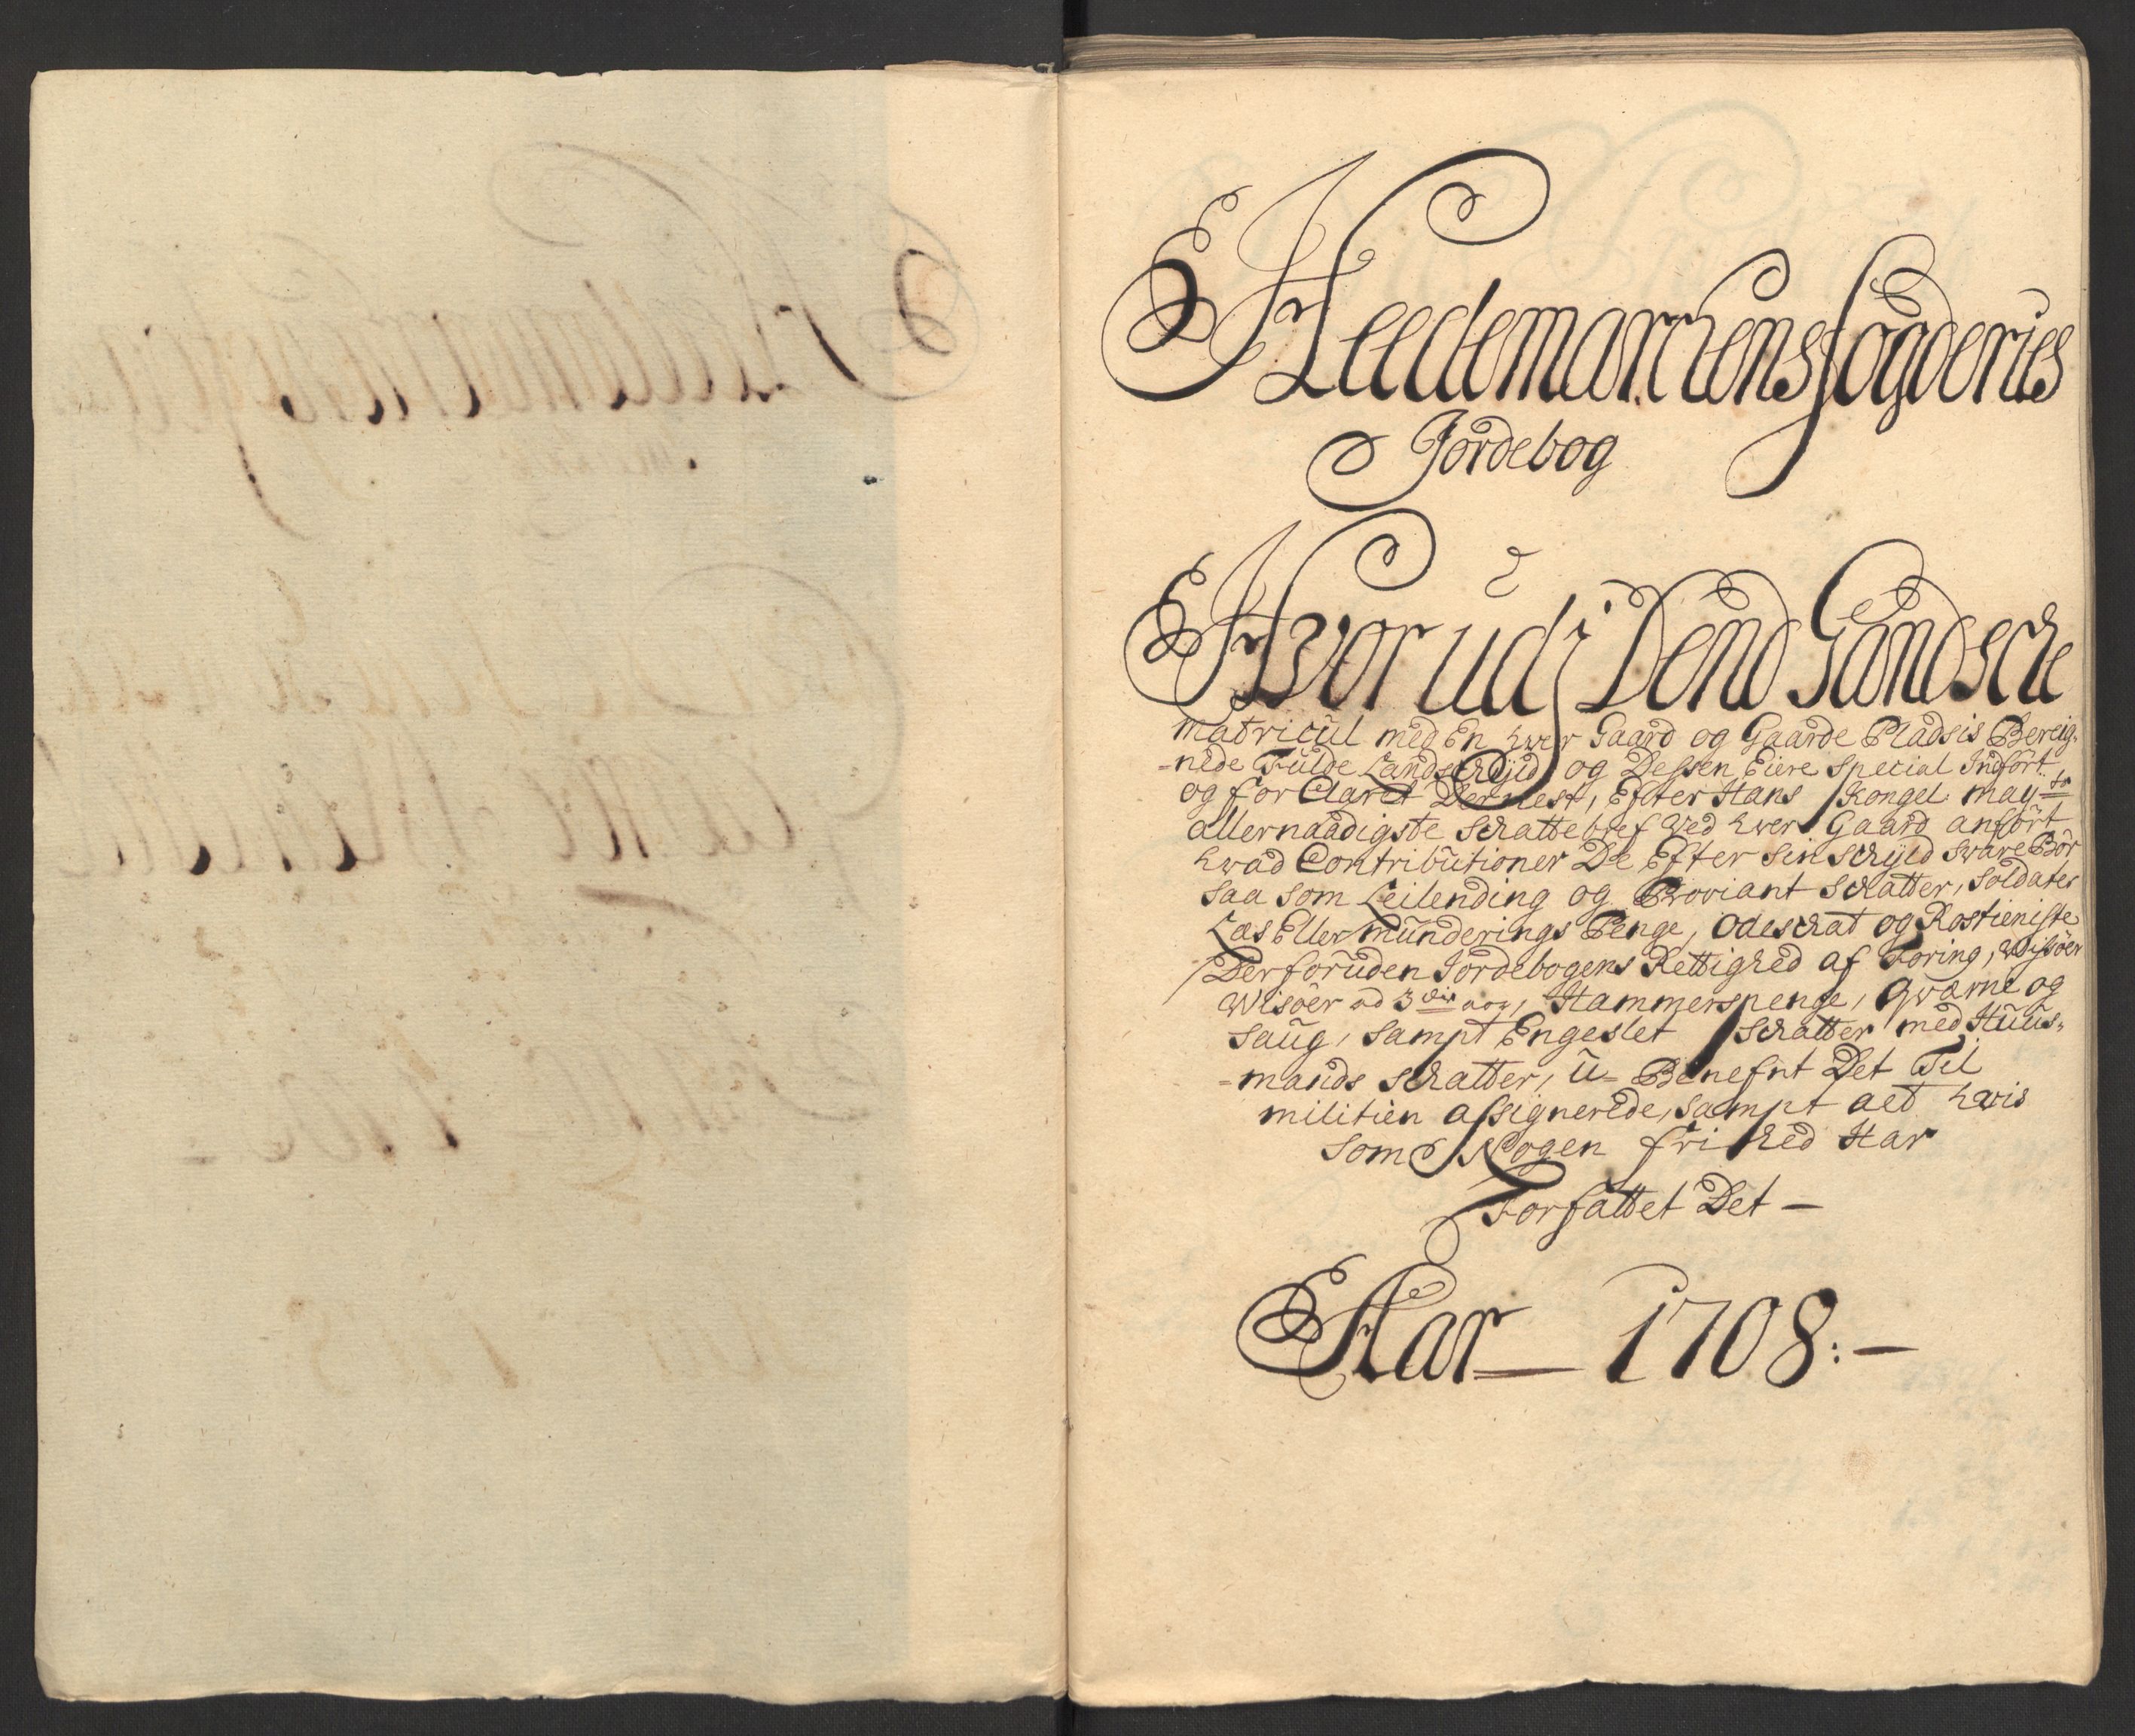 Heedemarchens fogderies
Jordebog
Hvor udj Dend Gandsche
matricul med En hver Gaard og Gaarde Pladsis Bereig-
-nede Fulde Landschyld og Dessen Eiere Special Indfört
og for Claret Dernest, Efter Hans Kongel: may:ts
allernaadigste Schattebref Wed hver Gaard anfört
hvad Contributioner De Efter sin schyld sware Bör
saa som Leilending og Proviant Schatter, Soldater
Læs Eller munderings Penge, Odeschat og Rostieniste
Derforuden Jordebogens Rettighed af Foring, Wissöer
Wisöer ad 3die aar, Hammerspenge, Qwarne og
Saug, Sampt Engeslet Schatter med Huus-
-mands schatter, U-Benefnt Det Til
militien assignerede, sampt alt hvis
som Nogen frihed Har
Forfattet Det –
Aar – 1708: –